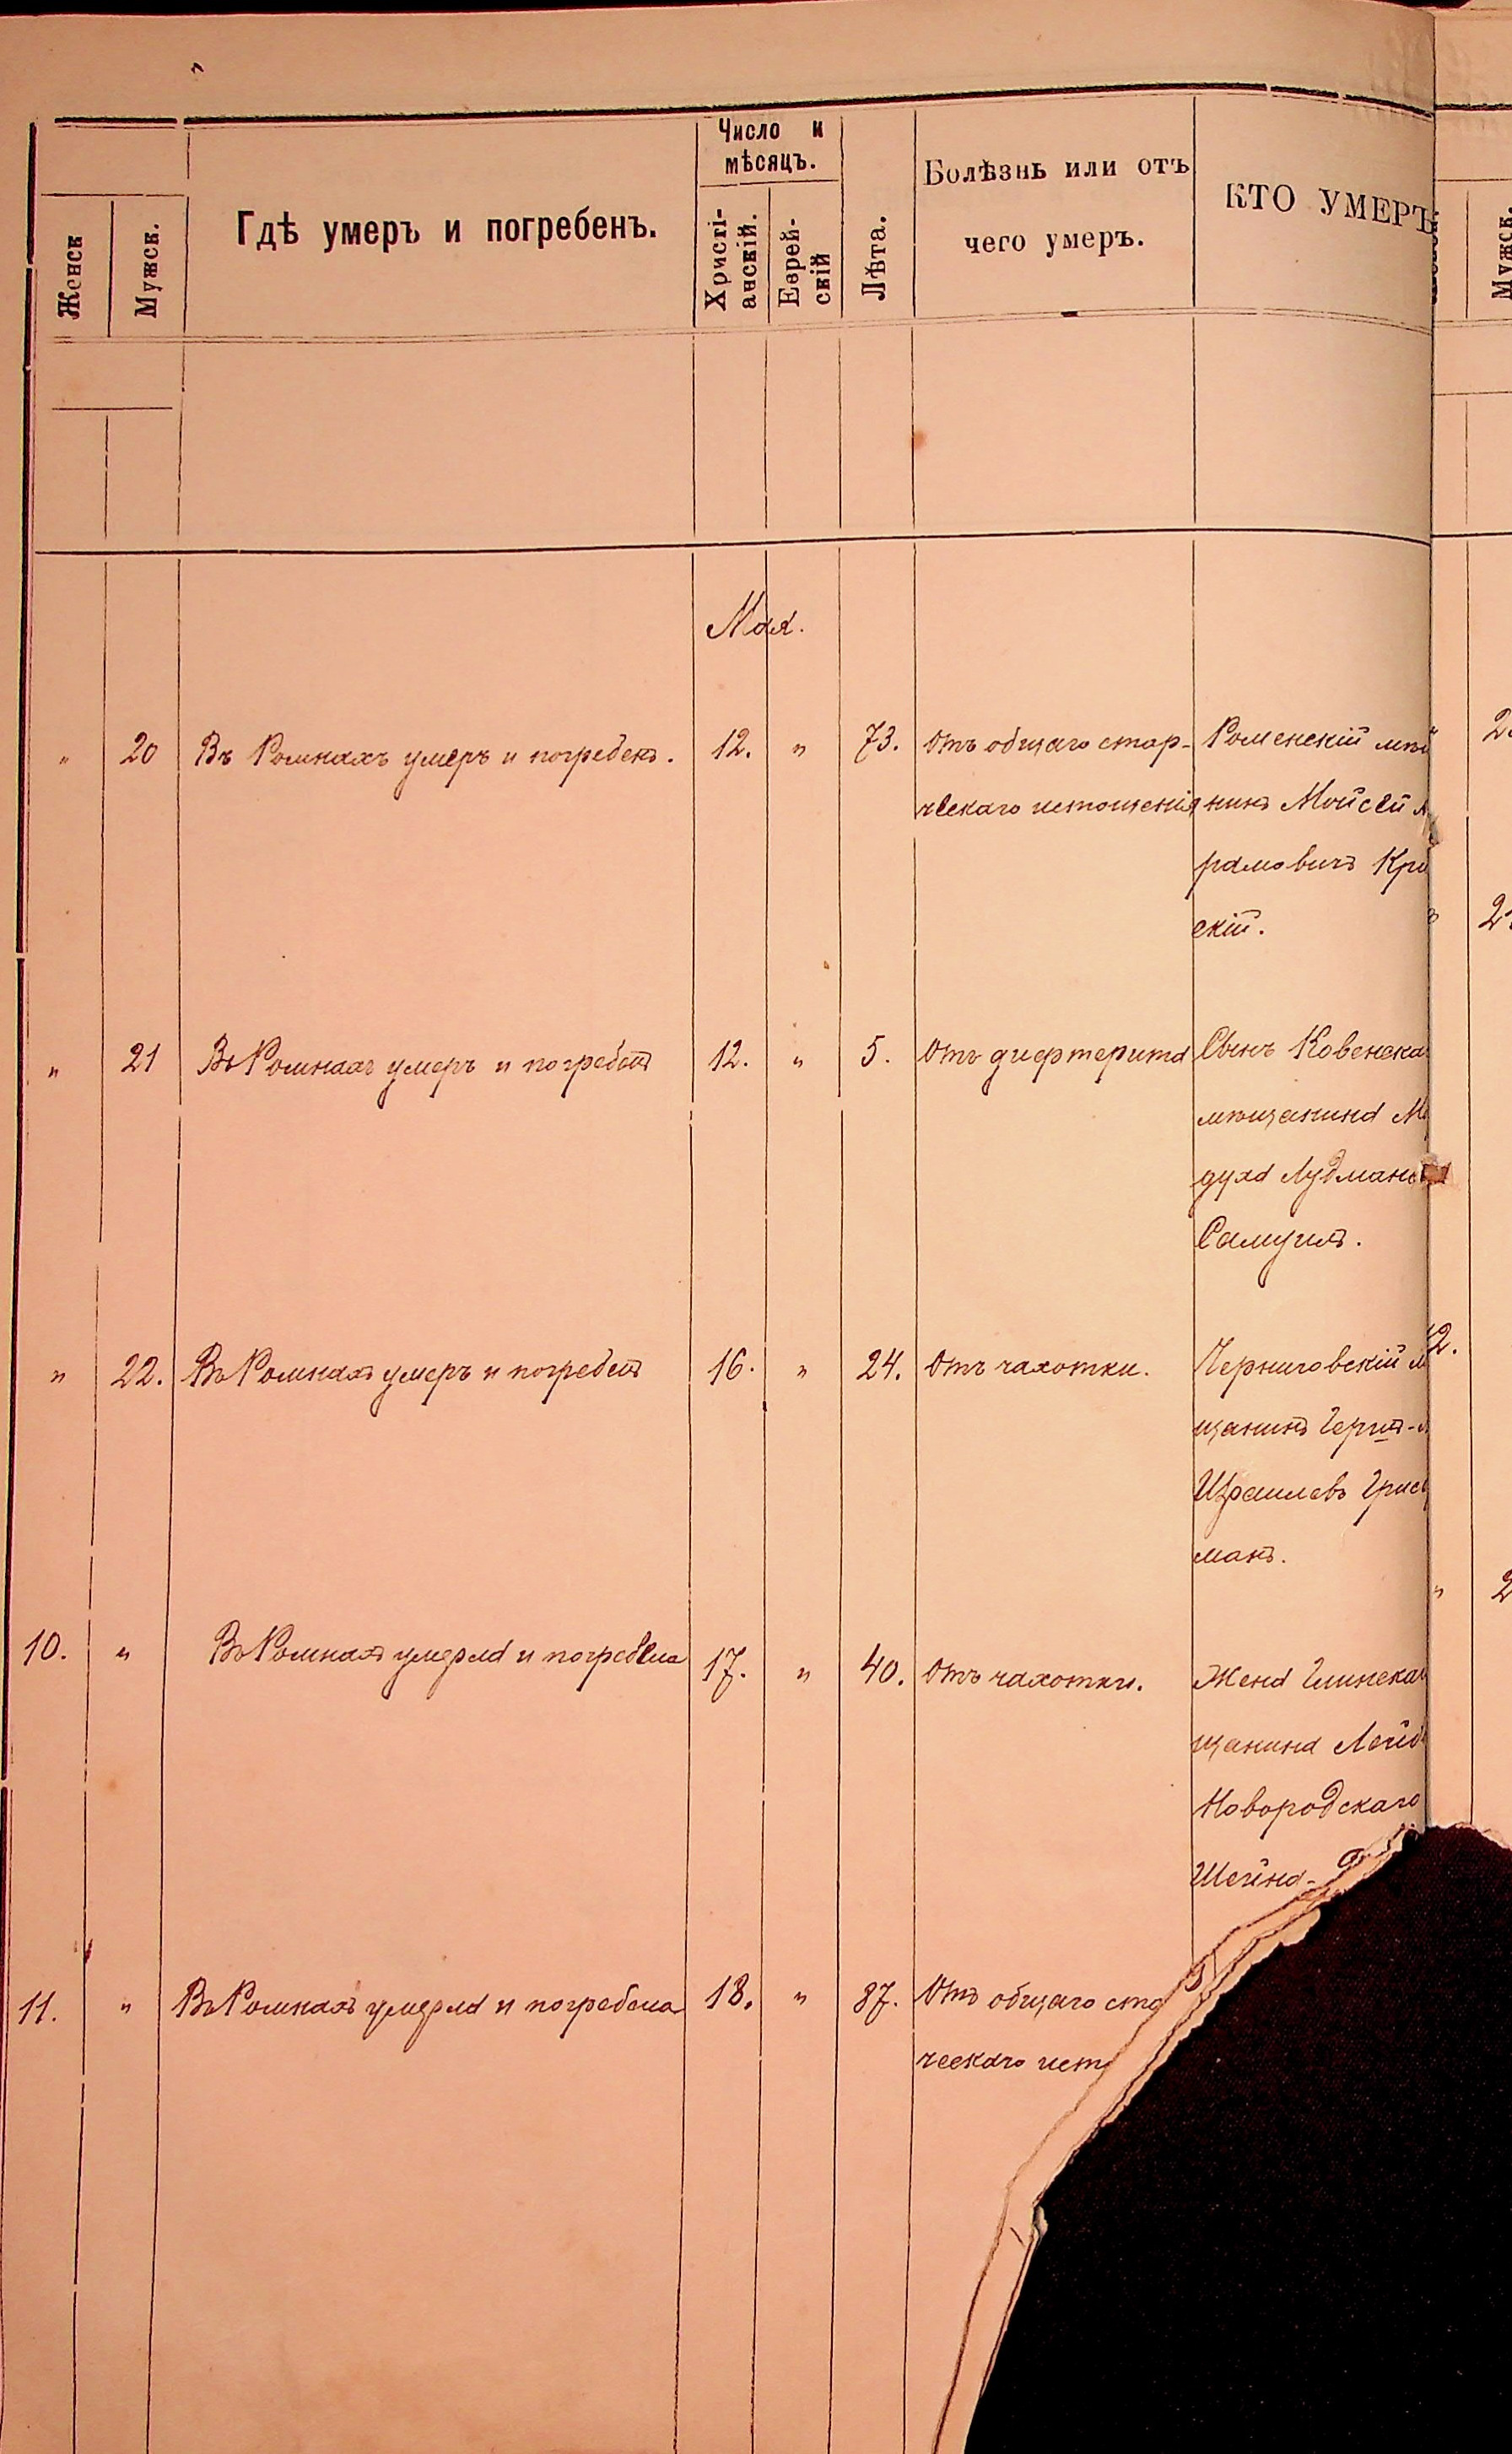 Женск
Мужск.
Гдѣ умеръ и погребенъ.
Число и
мѣсяцъ.
Христі-
анскій.
Еврей-
скій
Лѣта.
Болѣзнь или отъ
чего умеръ.
КТО УМЕРЪ
Мужск.
Мая.
" 20 Въ Ромнахъ умеръ и погребенъ. 12. " 73. Отъ общаго стар- Роменскій мѣ
ческаго истощенія нинъ Мойсей
рамовичъ Кри
скій.
" 21 Въ Ромнахъ умеръ и погребенъ 12. " 5. Отъ дифтерита Сынъ Ковенска
мѣщанина М
духа Лудман
Самуилъ.
" 22. Въ Ромнахъ умеръ и погребенъ 16. " 24. Отъ чахотки. Черниговскій м
щанинъ Герцъ-
Израилевъ Грис
манъ.
10. " Въ Ромнахъ умерла и погребена 17. " 40. Отъ чахотки. Жена Глинска
щанина Лейб
Новородскаго
Шейна-
11. " Въ Ромнахъ умерла и погребена 18. " 87. Отъ общаго ста
ческаго ист